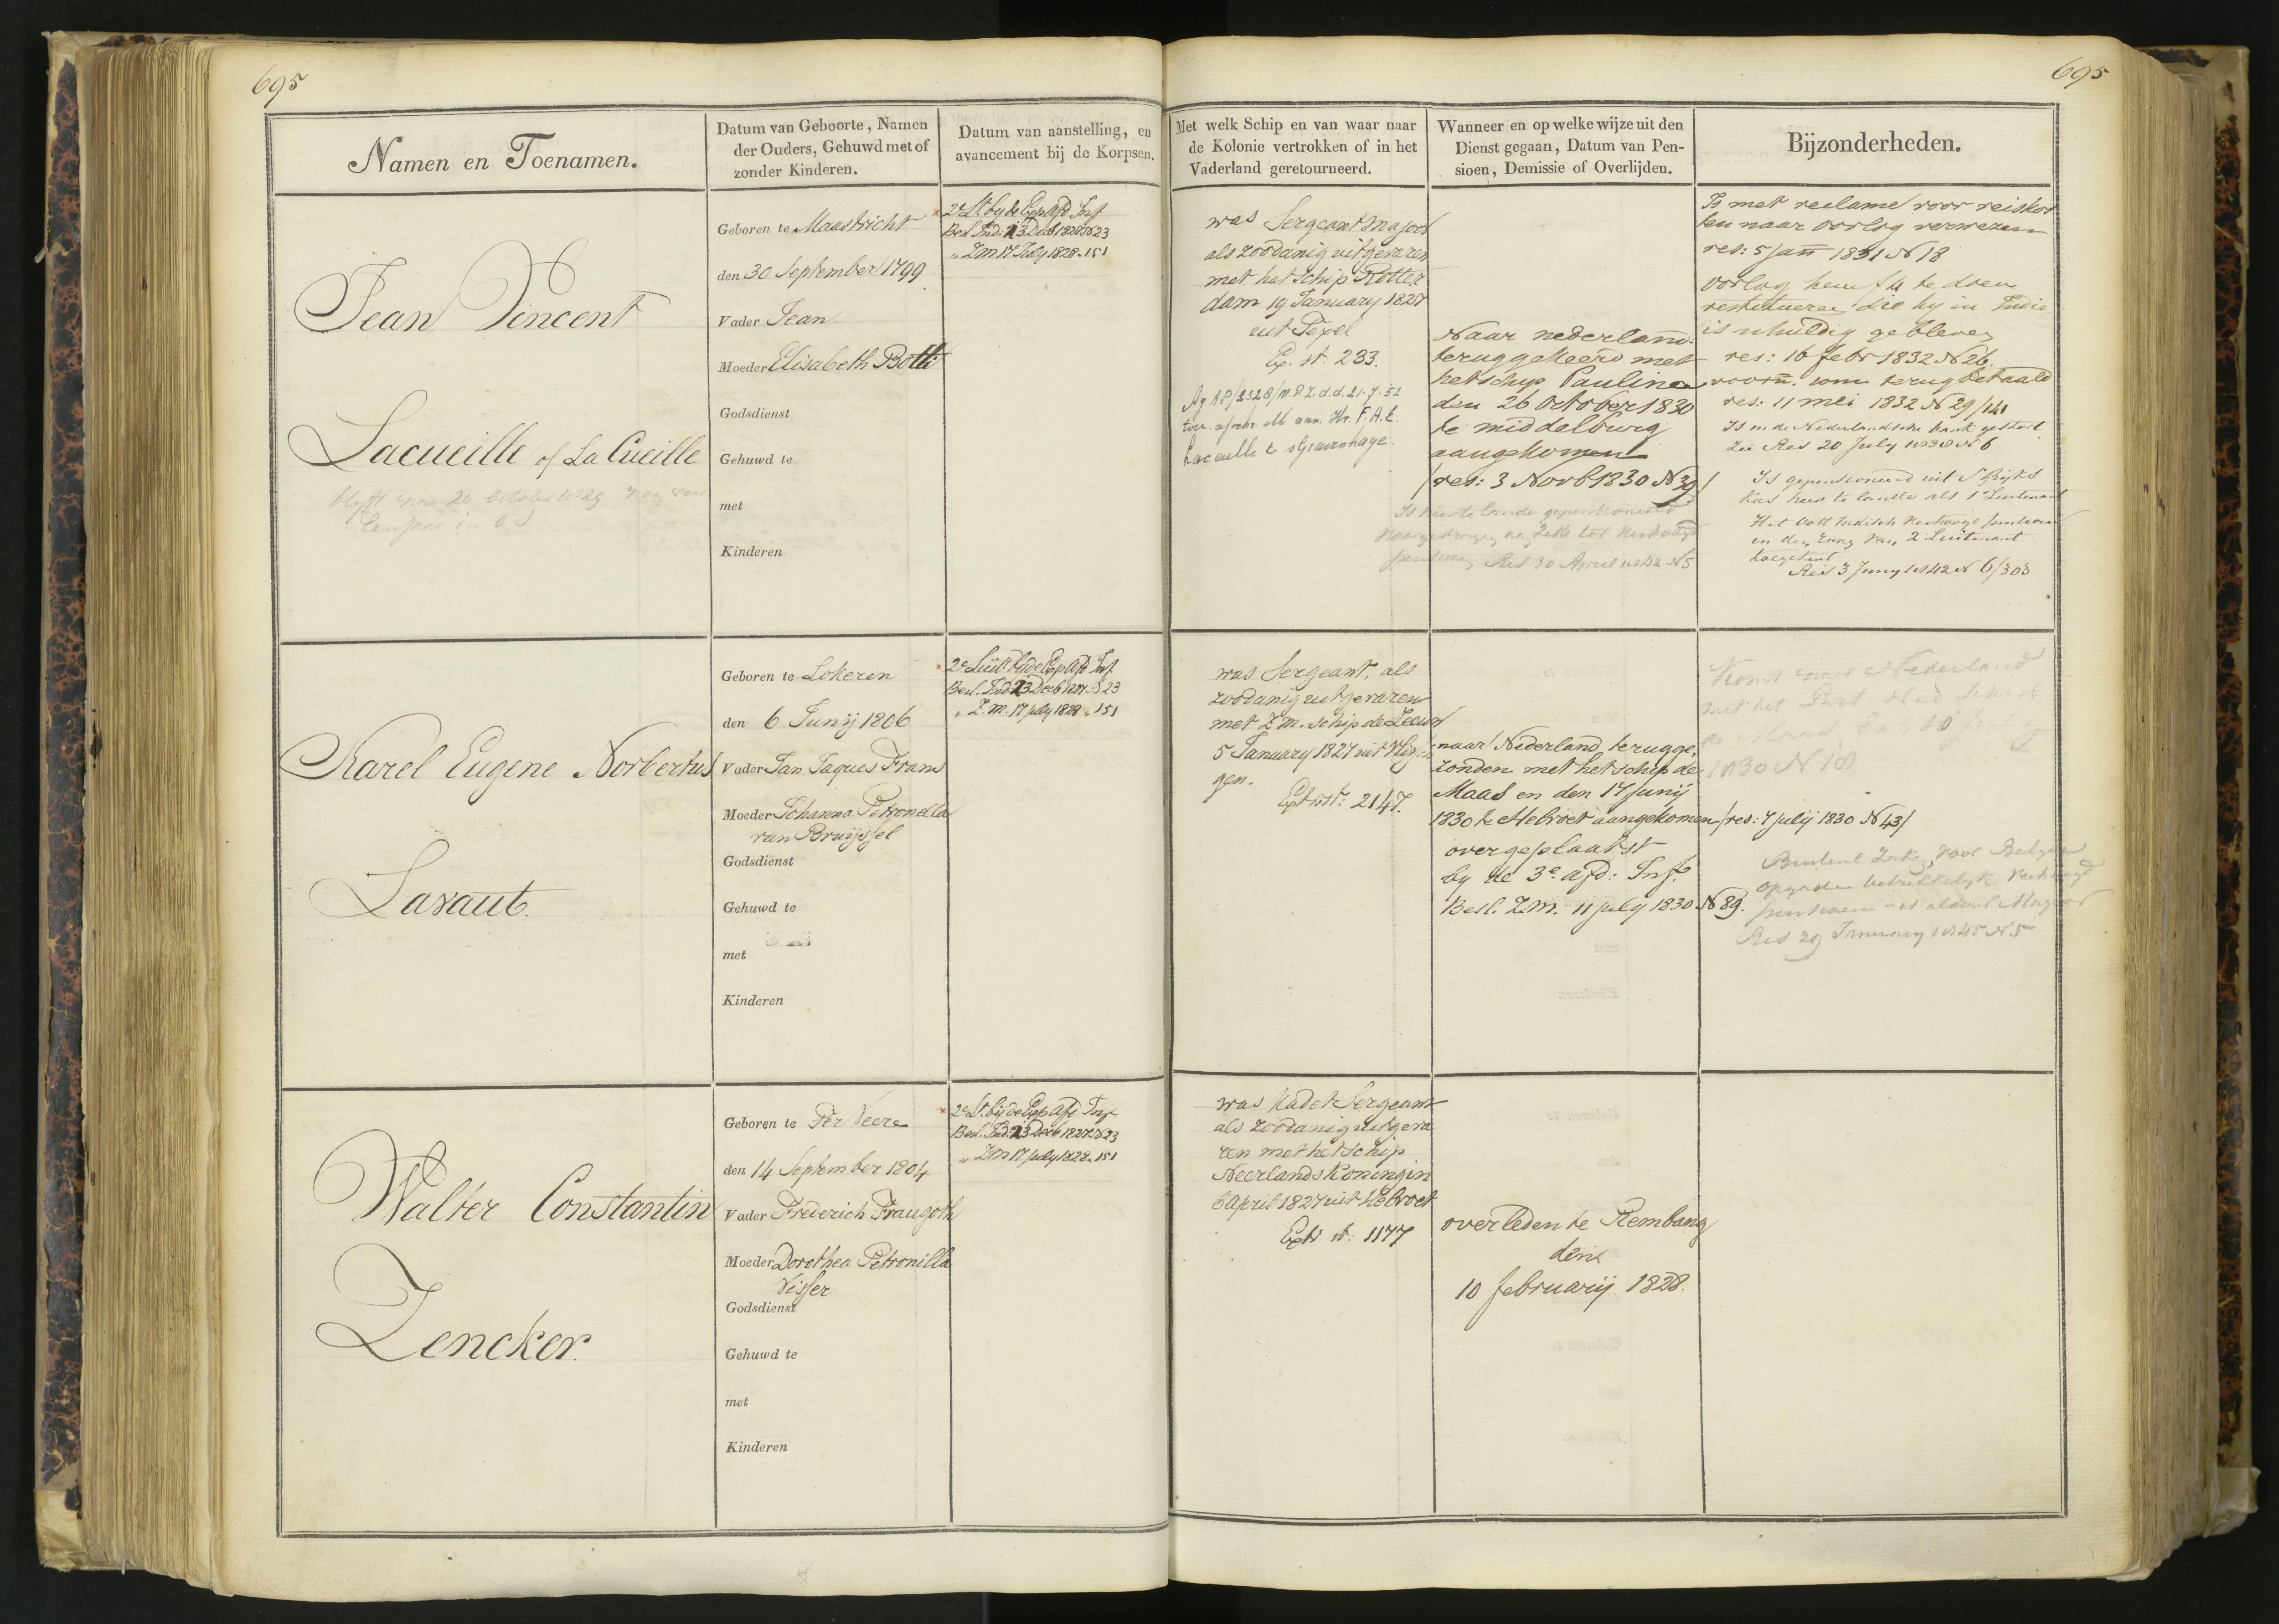 695
695
Namen en Toenamen.
Datum van Geboorte, Namen
der Ouders, Gehuwd met of
zonder Kinderen.
Datum van aanstelling, en
avancement bij de Korpsen.
Met welk Schip en van waar naar
de Kolonie vertrokken of in het
Vaderland geretourneerd.
Wanneer en op welke wijze uit den
Dienst gegaan, Datum van Pen-
sioen, Demissie of Overlijden.
Bijzonderheden.
Jean Vincent
Lacueille of La Cueille
blyft 20 October 1829 nog voor
in O I
Geboren te Maastricht
den 30 September 1799
Vader Jean
Moeder Elisabeth Botti
Godsdienst
Gehuwd te
met
Kinderen
2e Lt. by de Exp. Afd. Inf.
Besl. Ind. 23 Decb 1827 N 23
" Z.M 17 July 1828 " 151
was Sergeant majoor
als zoodanig uitgevaren
met het schip Rotter
dam 19 January 1827
uit Texel
Ex. st. 233.
Ag A.P/2328/m.P.Z. d.d. 21.7.52
aan Hr. F.A.E.
Lacueille te sGravenhage.
Naar nederland.
teruggekeerd met
het schip Paulina
den 26 October 1830
te middelburg
aangekomen
/res: 3 Novb 1830 N 39/
Is hier te lande gepensioneerd
tot verhoogd
pensioen Res 30 April 1842 N 5
Is met reclame voor reiskos
ten naar oorlog verwezen
res: 5 Jan 1831 N 18
oorlog hem f 4 te doen
restitueren die hy in Indie
is schuldig gebleven
res: 16 febr 1832 N 26.
voorn. som terugbetaald
res: 11 mei 1832 N 29/141
Is in de Nederlandsche bank gestort
zie Res 20 July 1838 N 6
Is gepensioneerd uit 's Rijks
Kas hier te lande als 1e Luitenant
Het Oost Indisch verhoogd pensioen
in den rang van 2 Luitenant
toegekend
Res 3 Juny 1842 N 6/303
Karel Eugene Norbertus
Lavaut.
Geboren te Lokeren
den 6 Junij 1806
Vader Jan Jaques Frans
Moeder Johanna Petronella
van Bruijssel
Godsdienst
Gehuwd te
met
Kinderen
2e Luit. by de Exp. Afd. Inf.
Besl. Ind. 23 Decb 1827 N 23
" Z.M. 17 july 1828 " 151
was Sergeant, als
zoodanig uitgevaren
met Z.M. schip de Leeuw
5 January 1827 uit Vlissin
gen.
Extr st: 2147.
naar Nederland terugge-
zonden met het schip de
Maas en den 17 Junij
1830 te Helvoet aangekomen /res: 7 julij 1830 N 43/
overgeplaatst
by de 3e. afd: Inf.
Besl. Z.M. 11 july 1830 N 89.
Komt naar Nederland
met het
Maas
1830 N 18
Buitenl Zaken voor Belgie
opgaven betrekkelijk verhoogd
pensioen
Res 29 January 1845 N 5
Walter Constantin
Zencker.
Geboren te Ter Veere
den 14 September 1804
Vader Frederich Fraugoth
Moeder Dorothea Petronilla
Visser
Godsdienst
Gehuwd te
met
Kinderen
2e Lt. bij de Exp. Afd Inf.
Besl. Ind. 23 Decb 1827 N 23
" Z.M 17 july 1828 " 151
was Kadet Sergeant
als zoodanig uitgeva
ren met het schip
Neerlands Koningin
6 April 1827 uit Helvoet
Extr st: 1177
overleden te Rembang
den
10 februarij 1828.